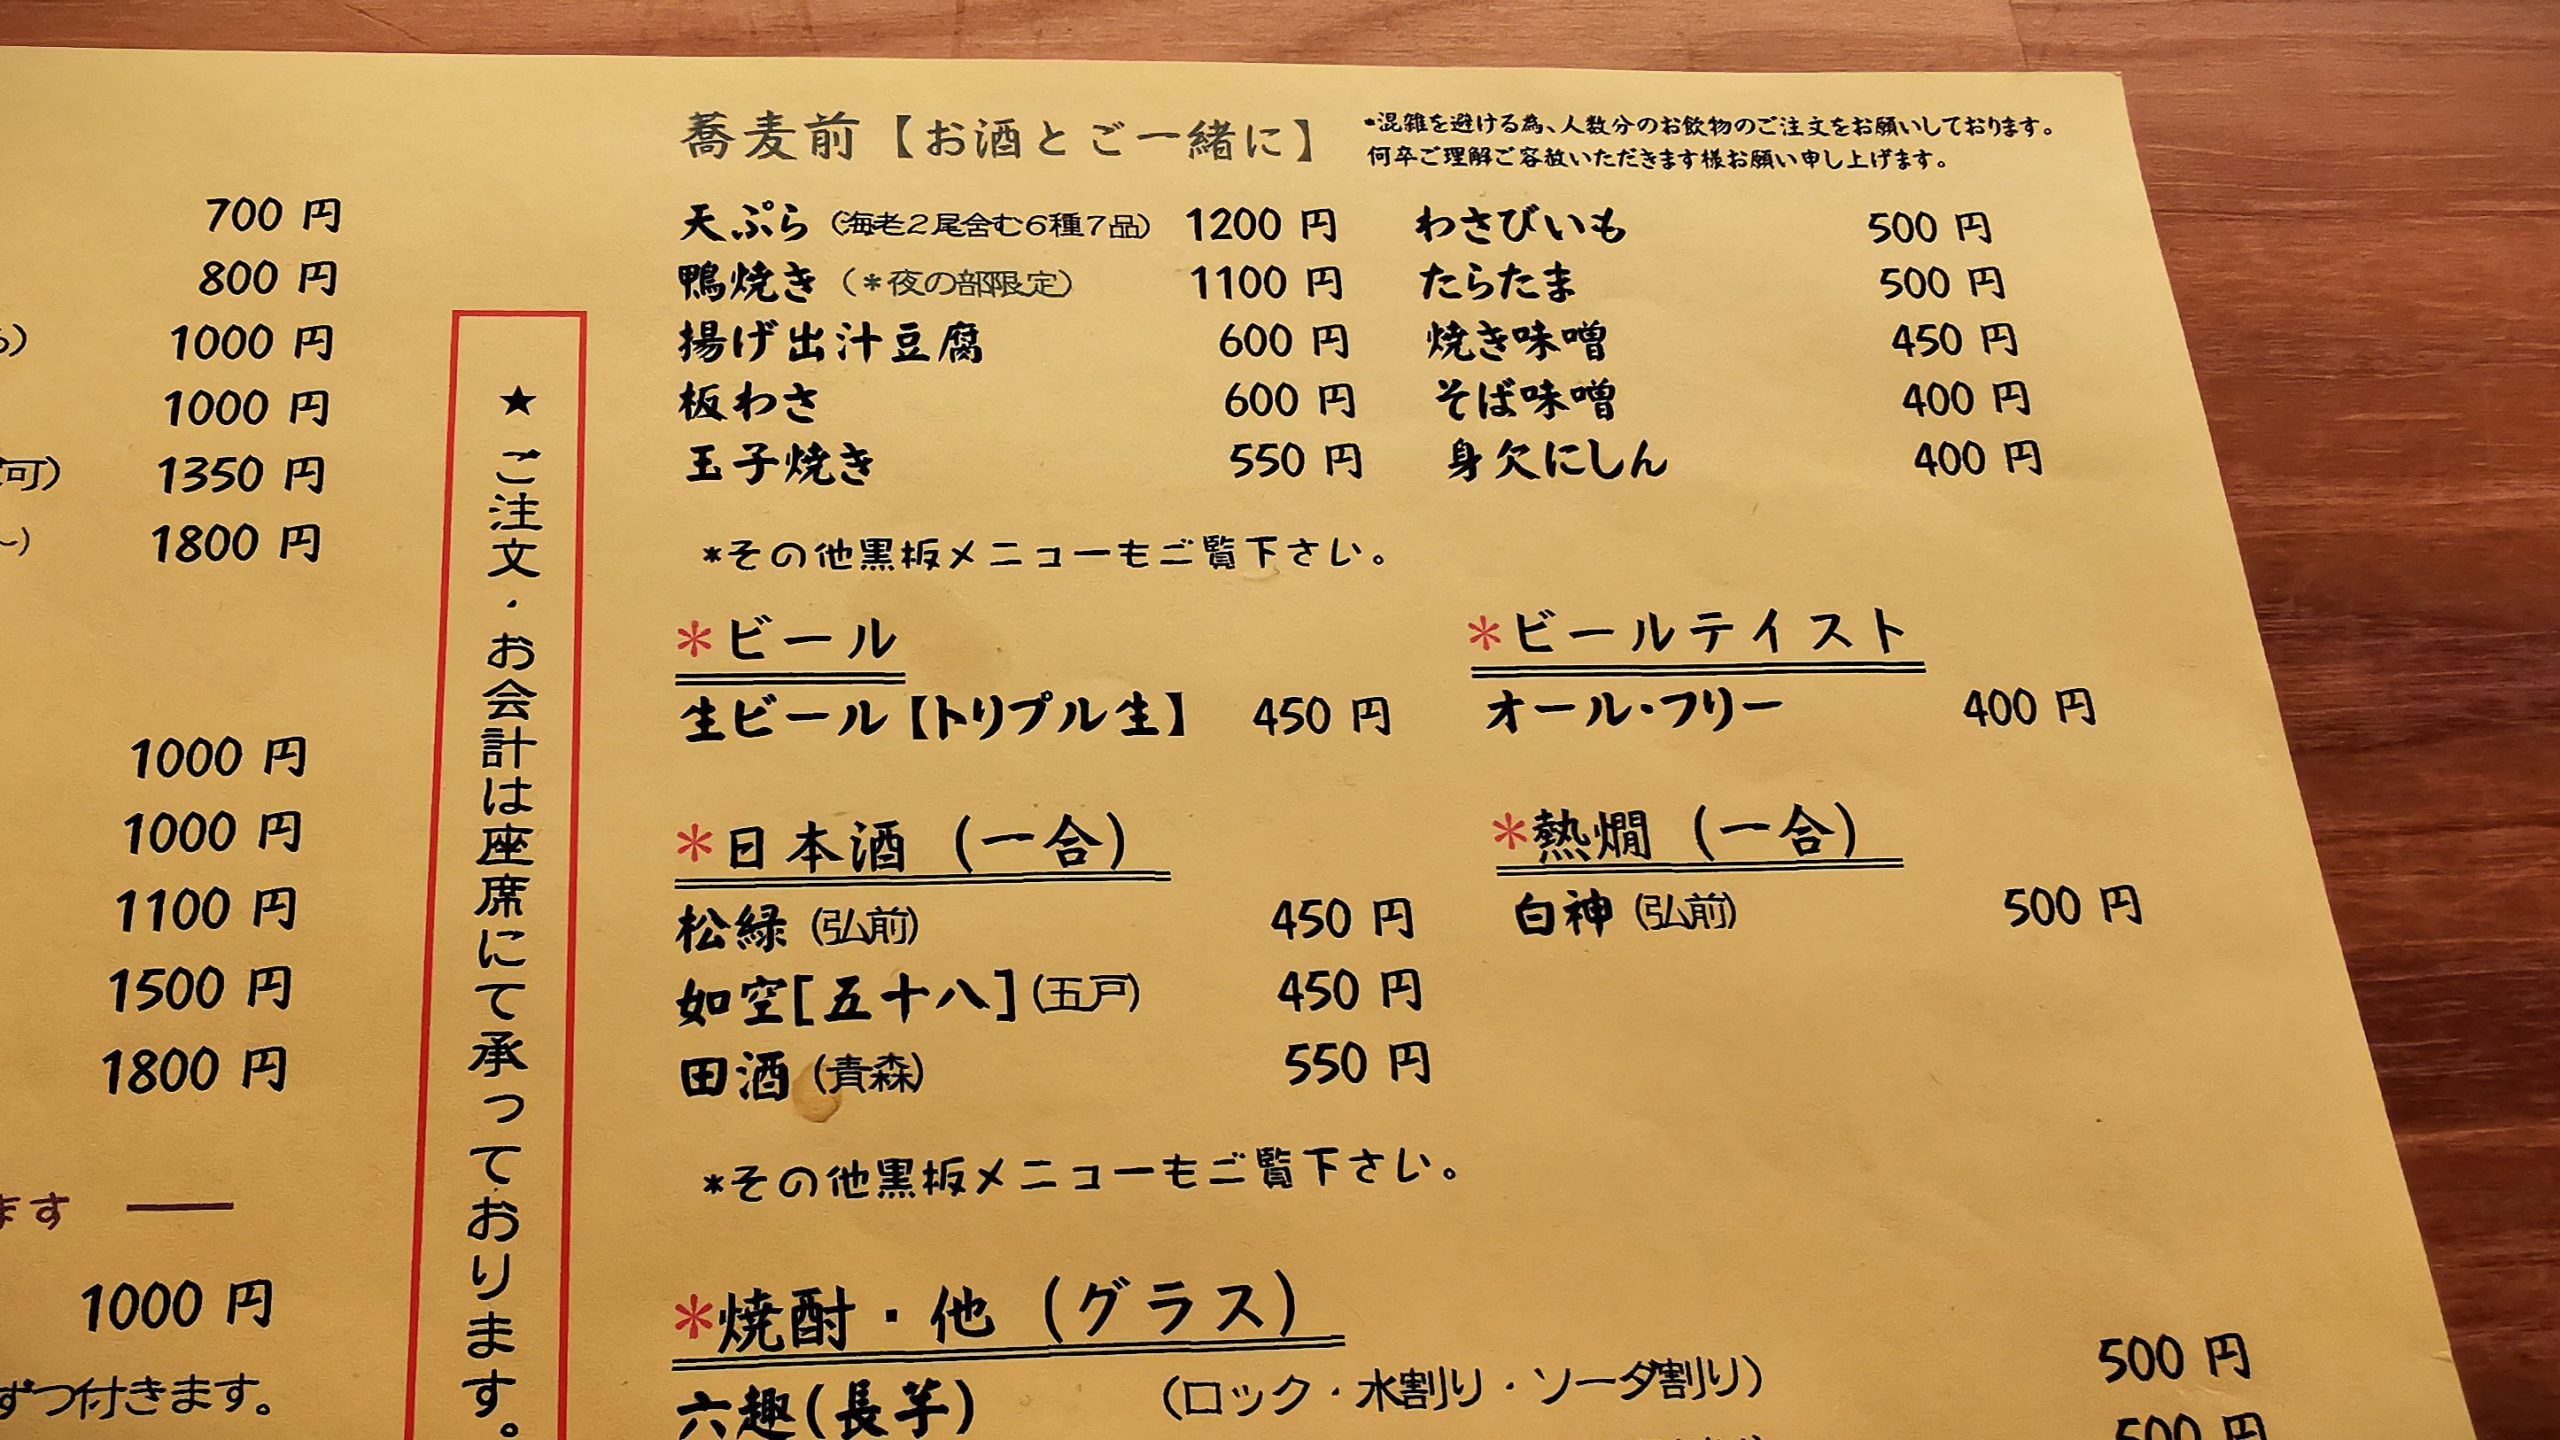 700 円
800 円
1000 円
1000 円
可) 1350 円
~) 1800 円
1000 円
1000 円
1100 円
1500 円
1800 円
ます
1000 円
ずつ付きます。
★ご注文・お会計は座席にて承っております。
蕎麦前【お酒とご一緒に】
*混雑を避ける為、人数分のお飲物のご注文をお願いしております。
何卒ご理解ご容赦いただきます様お願い申し上げます。
天ぷら (海老2尾含む6種7品) 1200 円
鴨焼き (*夜の部限定) 1100 円
揚げ出汁豆腐 600 円
板わさ 600 円
玉子焼き 550 円
わさびいも 500 円
たらたま 500 円
焼き味噌 450 円
そば味噌 400 円
身欠にしん 400 円
*その他黒板メニューもご覧下さい。
*ビール
生ビール【トリプル生】 450 円
*ビールテイスト
オール・フリー 400 円
*日本酒 (一合)
松緑 (弘前) 450 円
如空[五十八](五戸) 450 円
田酒 (青森) 550 円
*熱燗 (一合)
白神 (弘前) 500 円
*その他黒板メニューもご覧下さい。
*焼酎・他 (グラス)
六趣(長芋) (ロック・水割り・ソーダ割り) 500 円
500 円